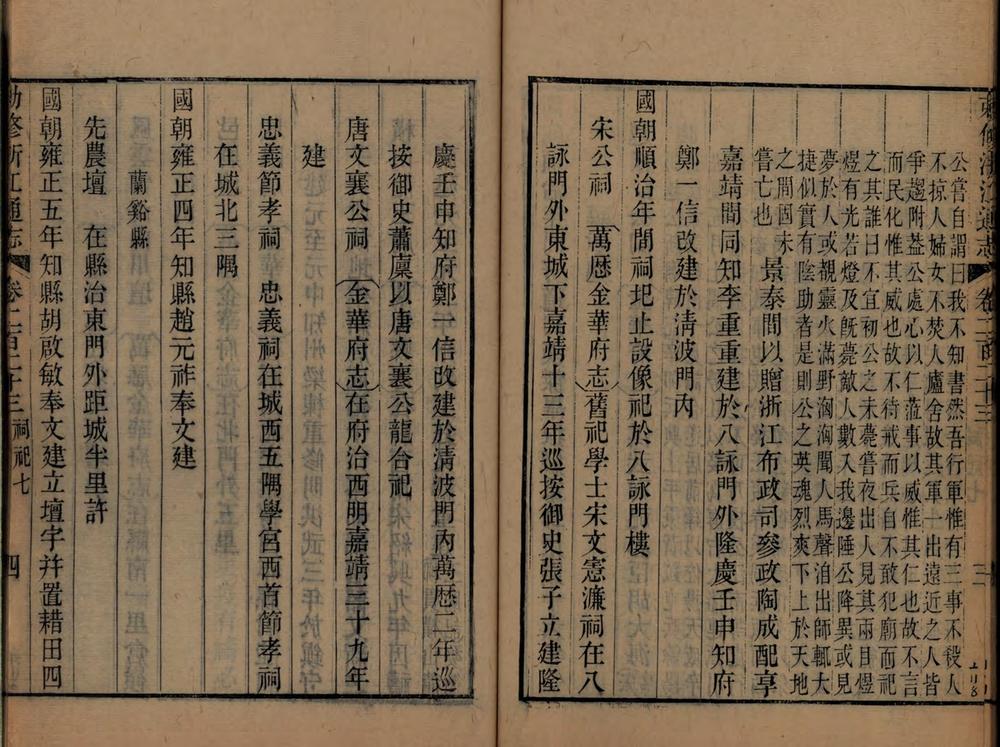 公嘗自謂曰我不知書然吾行軍惟有三事不殺人
不掠人婦女不焚人廬舍故其軍一出遠近之人皆
爭趨附葢公處心以仁蒞事以威惟其仁也故不言
而民化惟其威也故不待戒而兵自不敢犯廟而祀
之其誰曰不宜初公之未薨嘗夜出人見其兩目煜
煜有光若燈及旣薨敵人數入我邊陲公降異或見
夢於人或觀靈火滿野洶洶聞人馬聲洎出師輒大
捷似實有陰助者是則公之英魂烈爽下上於天地
之間固未
嘗亡也　景泰間以贈浙江布政司參政陶成配享
嘉靖間同知李重重建於八詠門外隆慶壬申知府
鄭一信改建於清波門內
國朝順治年間祠圯止設像祀於八詠門樓
宋公祠　萬歷金華府志舊祀學士宋文憲濂祠在八
詠門外東城下嘉靖十三年巡按御史張子立建隆
慶壬申知府鄭一信改建於清波門內萬歷二年巡
按御史蕭廩以唐文襄公龍合祀
唐文襄公祠　金華府志在府治西明嘉靖三十九年
建
忠義節孝祠　忠義祠在城西五隅學宮西首節孝祠
在城北三隅
國朝雍正四年知縣趙元祚奉文建
蘭谿縣
先農壇　在縣治東門外距城半里許
國朝雍正五年知縣胡啟敏奉文建立壇宇幷置耤田四
勅修浙江通志
卷二百二十三　祠祀七
四